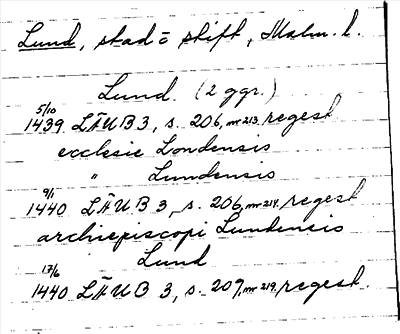 Lund, stad o stift, Malm. l.
Lund. (2 ggr.)
5/10
1439 LÄUB 3, s. 206, nr 213. regest
ecclesie Londensis
" Lundensis
9/1
1440 LÄUB 3, s. 206, nr 214. regest
archiepiscopi Lundensis
Lund
17/6
1440 LÄUB 3, s. 209, nr 219, regest.